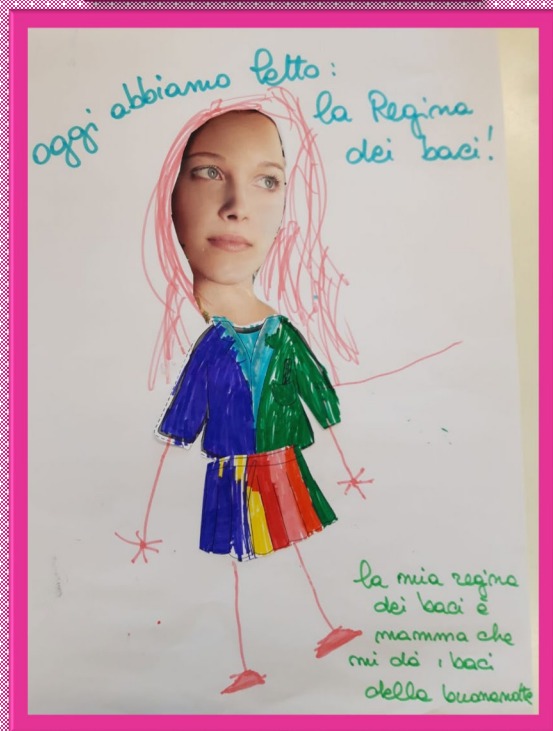 oggi abbiamo letto:
la Regina
dei baci!
la mia regina
dei baci è
mamma che
mi dà i baci
della buonanotte